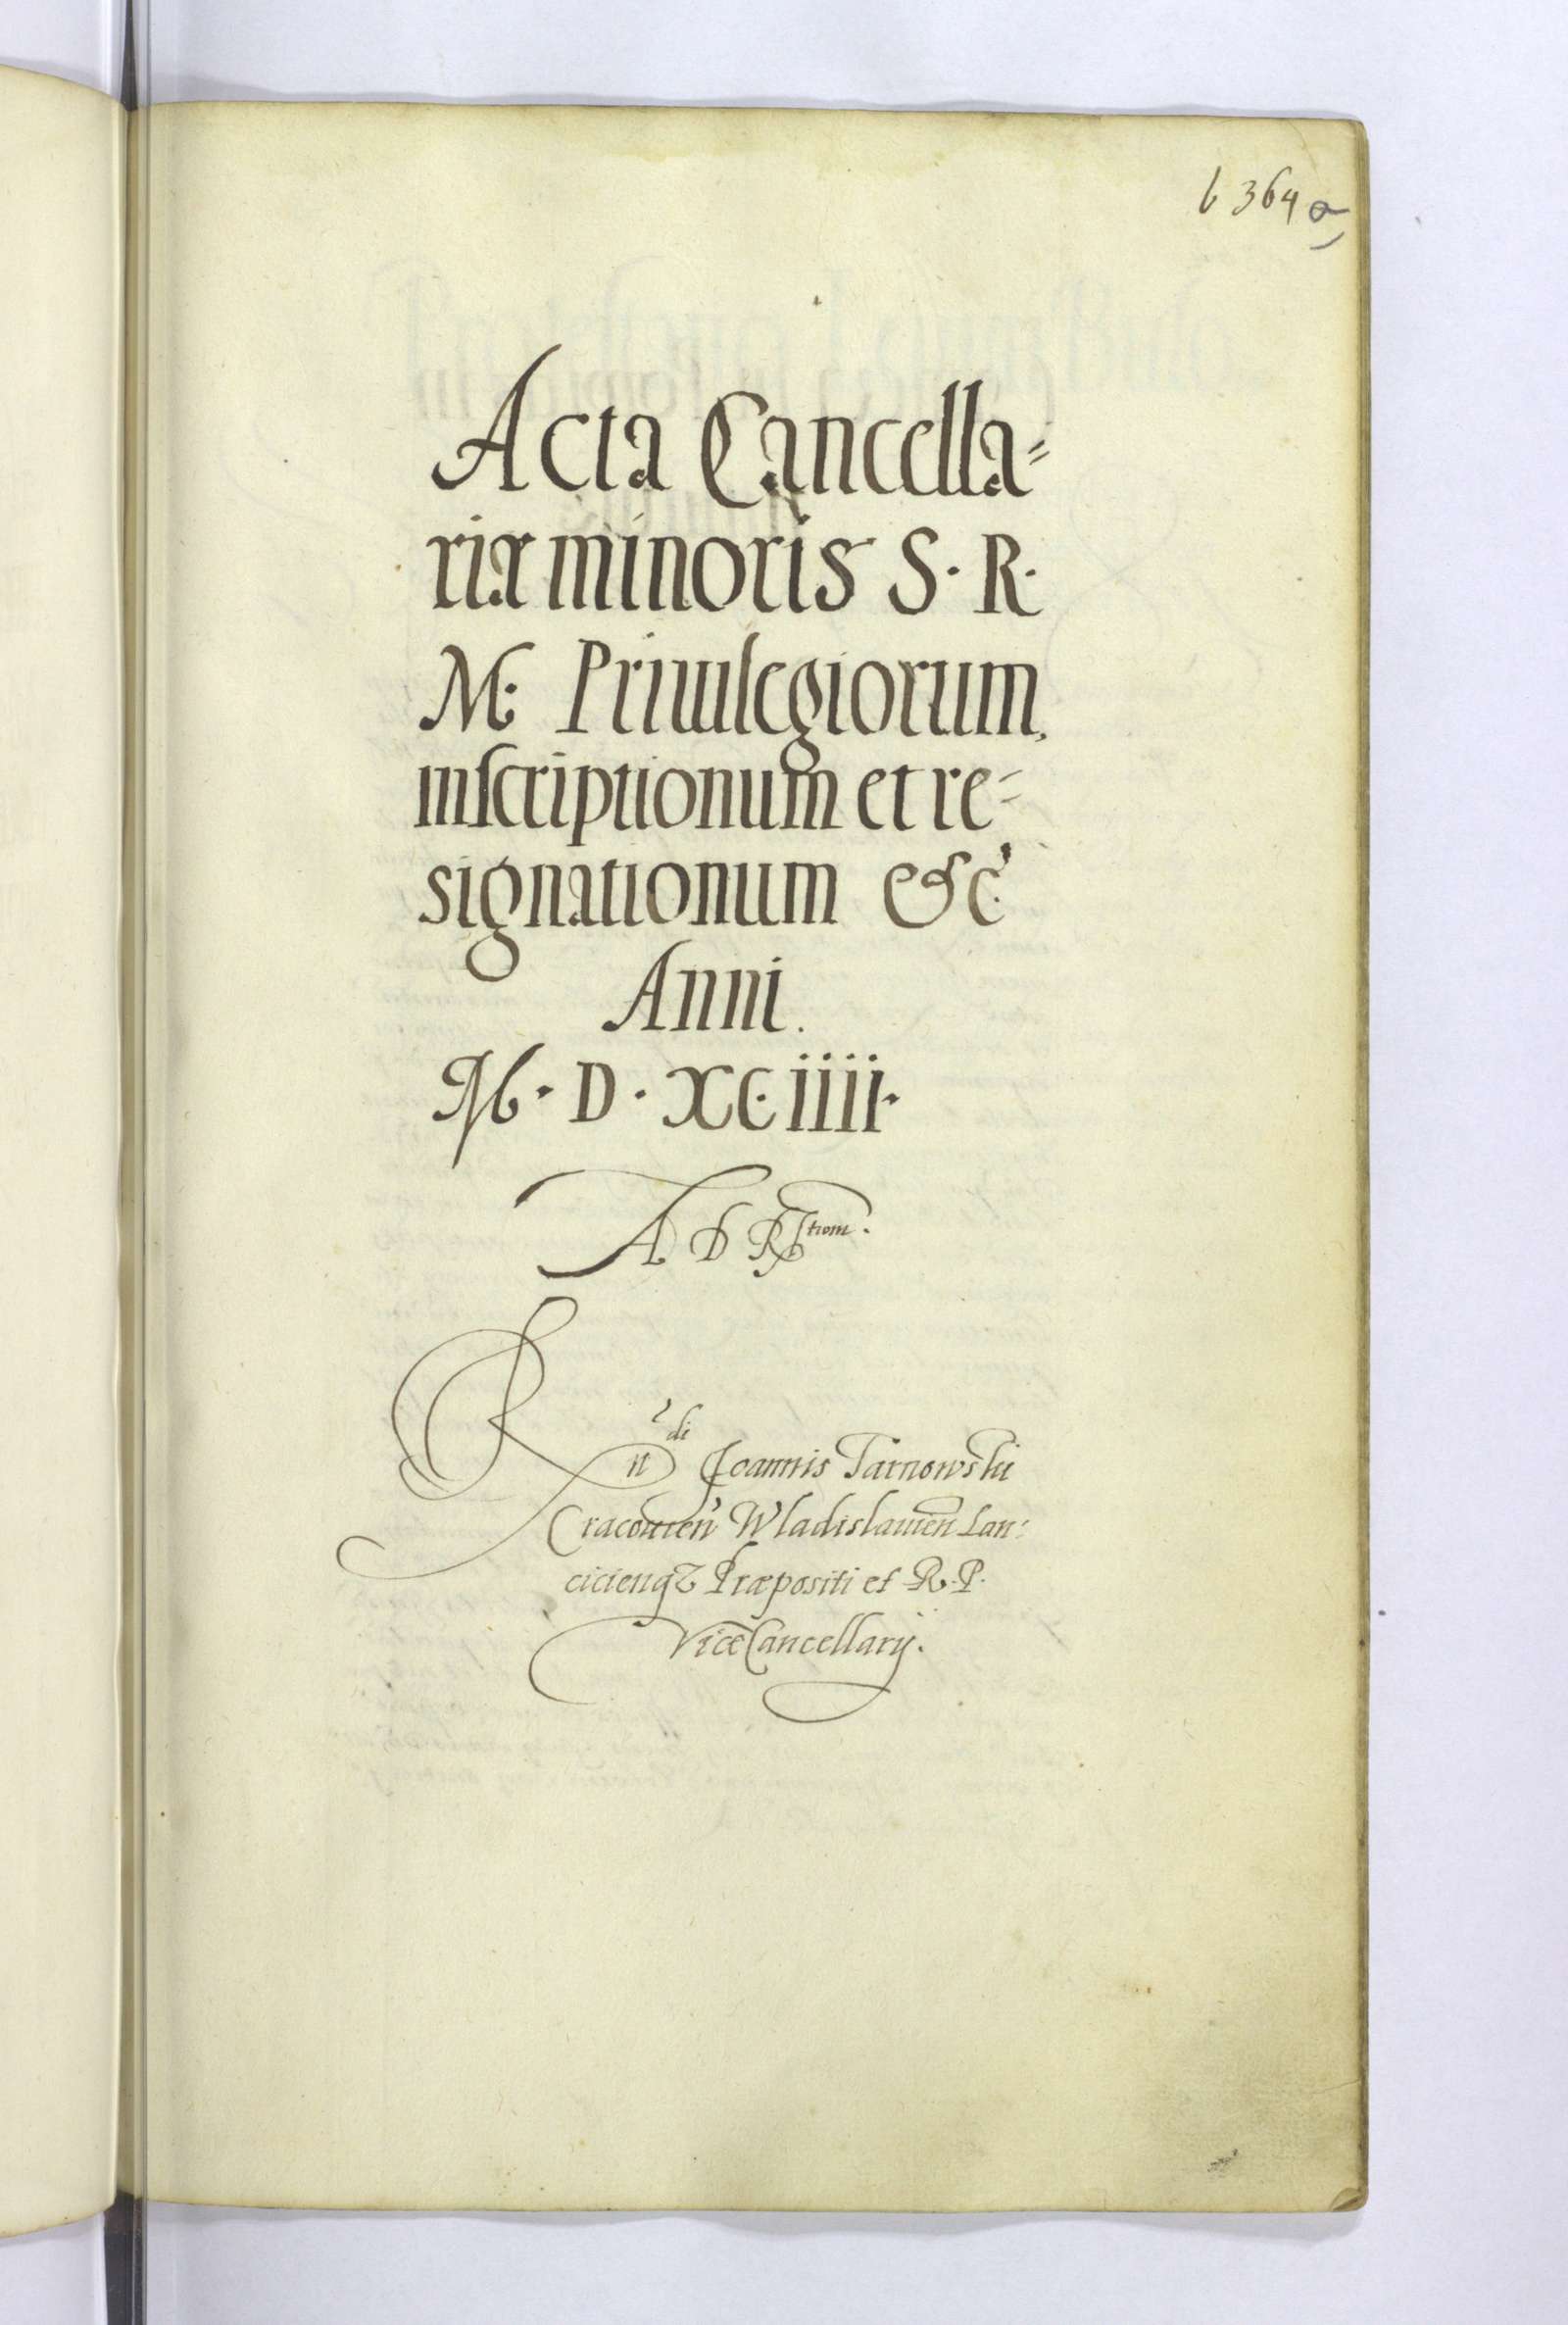 6 364 a
Acta Cancella=
riæ minoris S. R.
M. Priuilegiorum,
inscriptionum et re=
signationum &c̃
Anni.
M. D. XC iiii.
A D
Rndi Joannis Tarnowski
Cracouień Wladislauień Lan:
cicienqȝ Præpositi et R. P.
ViceCancellarij.